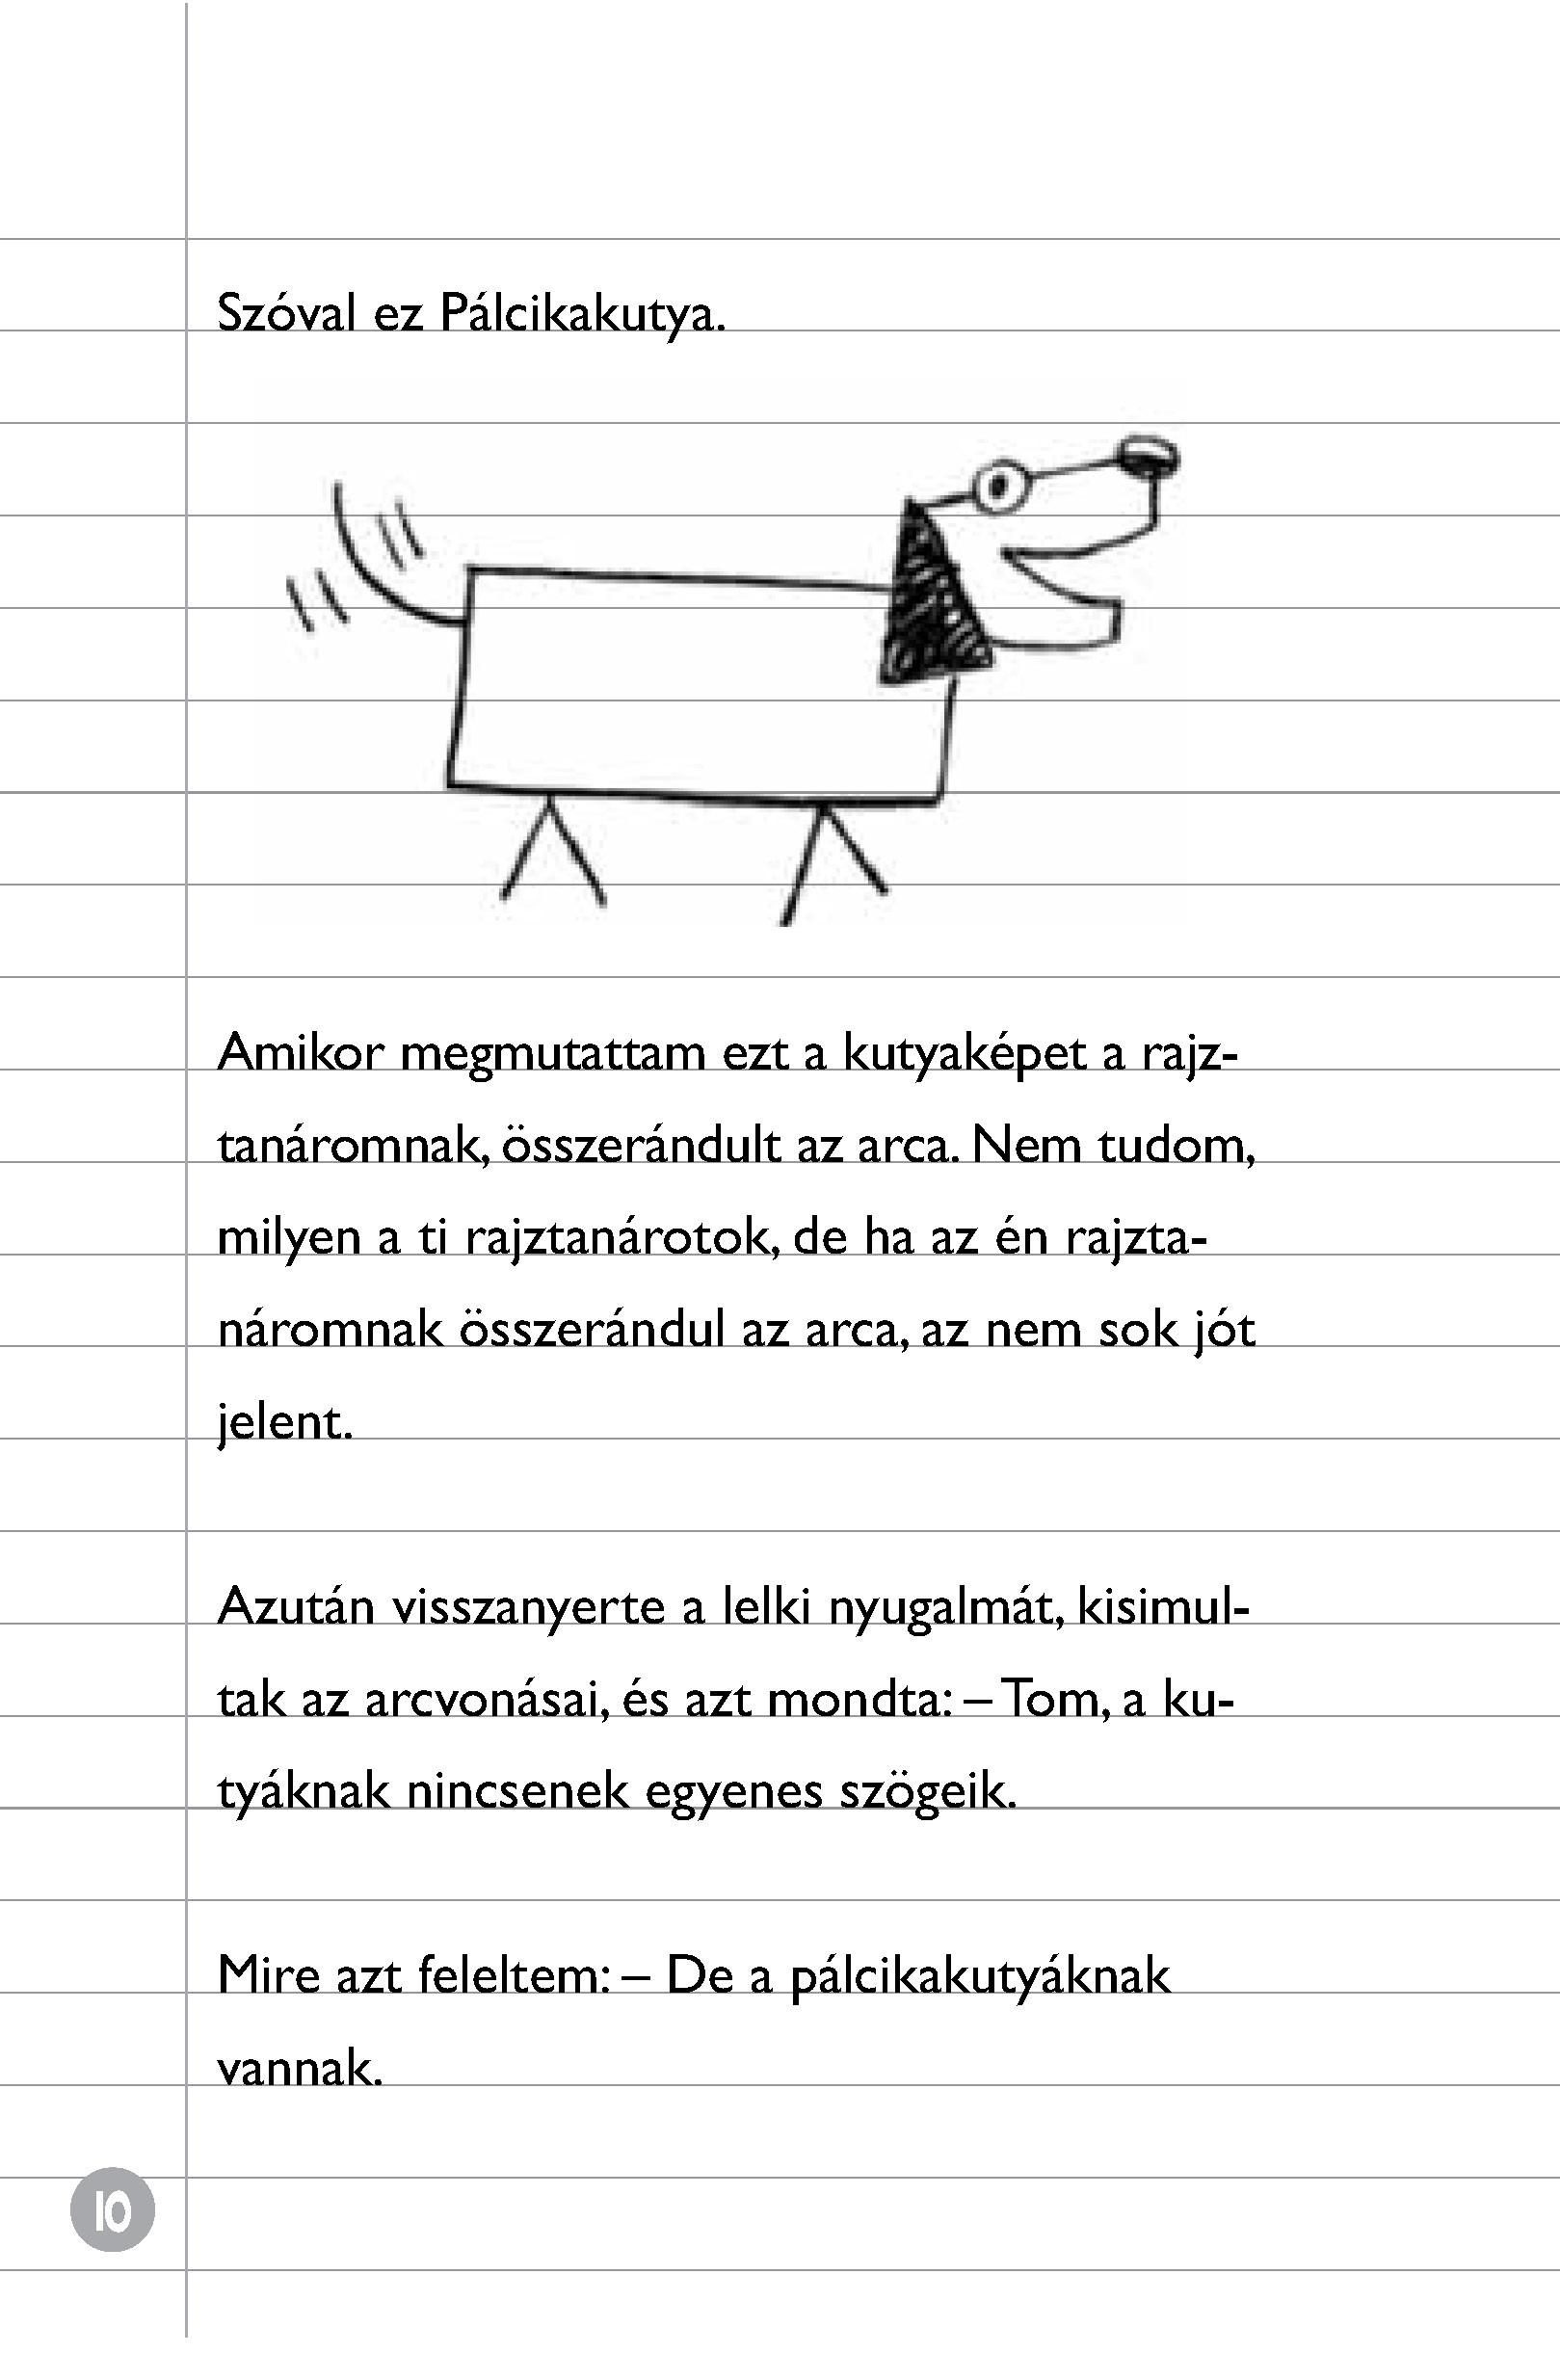 Szóval ez Pálcikakutya.
Amikor megmutattam ezt a kutyaképet a rajz-
tanáromnak, összerándult az arca. Nem tudom,
milyen a ti rajztanárotok, de ha az én rajzta-
náromnak összerándul az arca, az nem sok jót
jelent.
Azután visszanyerte a lelki nyugalmát, kisimul-
tak az arcvonásai, és azt mondta: – Tom, a ku-
tyáknak nincsenek egyenes szögeik.
Mire azt feleltem: – De a pálcikakutyáknak
vannak.
10